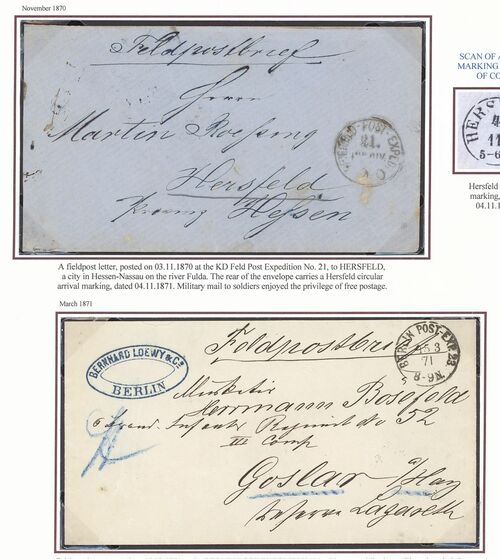 November 1870
Feldpostbrief
Herrn
Martin Roessing
Hersfeld
Hessen
FELD-POST-EXPED
21.
SCAN OF
MARKING
OF CO
HERSF
4
11
5-6
Hersfeld
marking,
04.11.1
A fieldpost letter, posted on 03.11.1870 at the KD Feld Post Expedition No. 21, to HERSFELD,
a city in Hessen-Nassau on the river Fulda. The rear of the envelope carries a Hersfeld circular
arrival marking, dated 04.11.1871. Military mail to soldiers enjoyed the privilege of free postage.
March 1871
Feldpostbrie
BERLIN POST-EXP. 23
5 3
71
6-8 N.
BERNHARD LOEWY & Co
BERLIN
Musketir
Herrmann Bosefeld
6 Infanterie Regiment No 52
III Comp
Goslar a/Harz
Lazareth